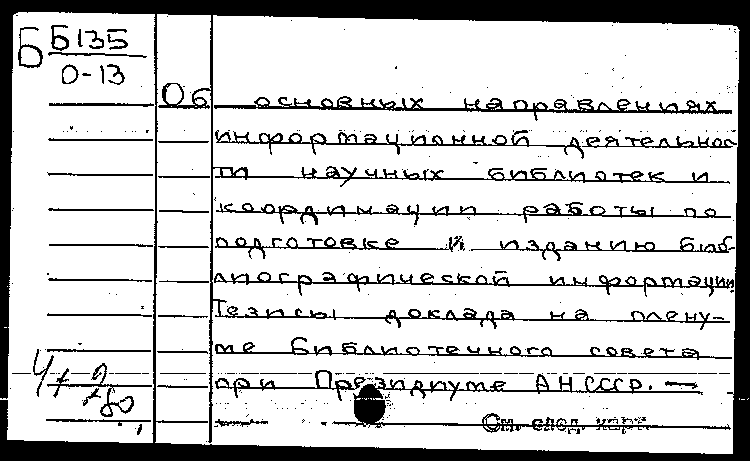 Б Б135
О-13
Об основных направлениях
информационной деятельнос
ти научных библиотек и
координации работы по
подготовке и изданию биб-
лиографической информации.
Тезисы доклада на плену-
ме Библиотечного совета
при Президиуме АН СССР. —
См. след. карт.